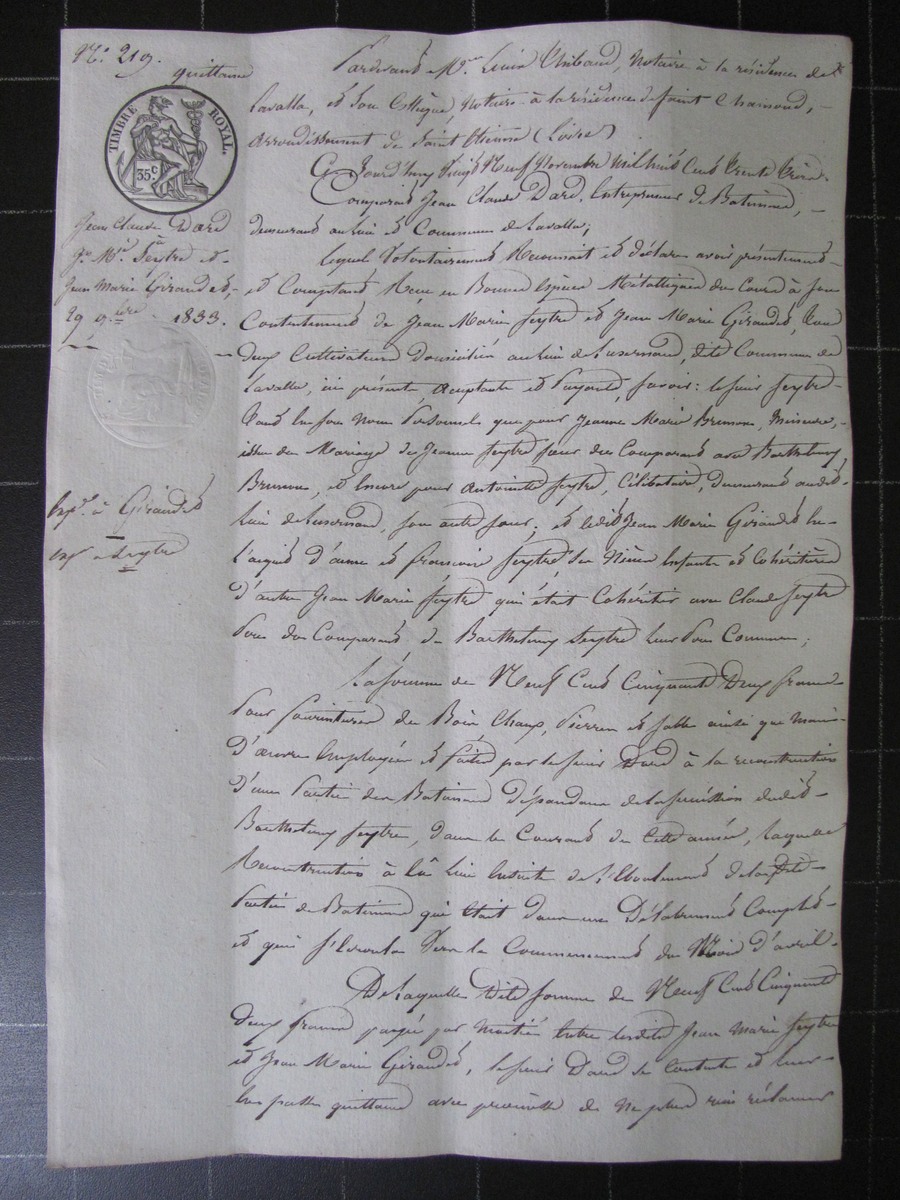 N.° 219.
quittance
TIMBRE ROYAL.
35 c
Jean Claude Dard
Jn. Mie. Seytre et
Jean Marie Giraudet,
29 9.bre 1833.
Exp.on à Giraudet
exp a Seytre
Pardevant M.re Thibaud, Notaire à la résidence de
Lavalla, et son Collègue, Notaire à la résidence de Saint Chamond,
arrondissement de Saint Etienne (Loire)
Ce Jourd'huy Vingt Neuf Novembre Mil huit Cent Trente Trois.
Comparait Jean Claude Dard, Entrepreneur de Batiments,
demeurant au lieu et Commune de Lavalla;
lequel Volontairement Reconnait et déclare avoir présentement
et Comptant Reçu en Bonnes Espèces Métalliques du Cours à son
Contentement de Jean Marie Seytre et Jean Marie Giraudet, tous
deux Cultivateurs domiciliés au lieu de Luzernod, dite Commune de
Lavalla, ici présents, acceptants et Payants, Savoir: le sieur Seytre
Tant en son Nom Personnel que pour Jeanne Marie Brunon, Mineure,
issue du Mariage de Jeanne Seytre soeur du Comparant avec Barthelemy
Brunon, et Encore pour Antoinette Seytre, Célibataire, demeurant audit
lieu de Luzernod, son autre soeur; et ledit Jean Marie Giraudet en
l'acquit d'anne et françoise Seytre ses Nièces Enfants et Cohéritières
d'autre Jean Marie Seytre qui était Cohéritier avec Claude Seytre
Père du Comparant de Barthelemy Seytre leur Père Commun;
La somme de Neuf Cent Cinquante Deux francs
Pour fournitures de Bois Chaux, Pierres et sable ainsi que main
d'oeuvre Employées et faites par le sieur Dard à la reconstruction
d'une Partie des Batiments dépendants de la succession dudit
Barthelemy Seytre, dans le Courant de Cette année, laquelle
Reconstruction à eû lieu Ensuite de l'Eboulement de la dite
Partie de Batiments qui était dans un Délabrement Complet
et qui s'Ecroula Vers le Commencement du Mois d'avril.
De laquelle dite somme de Neuf Cent Cinquante
deux francs payée par moitié Entre lesdits Jean Marie Seytre
et Jean Marie Giraudet, le sieur Dard se Contente et leur
en passe quittance avec promesse de Ne plus rien réclamer